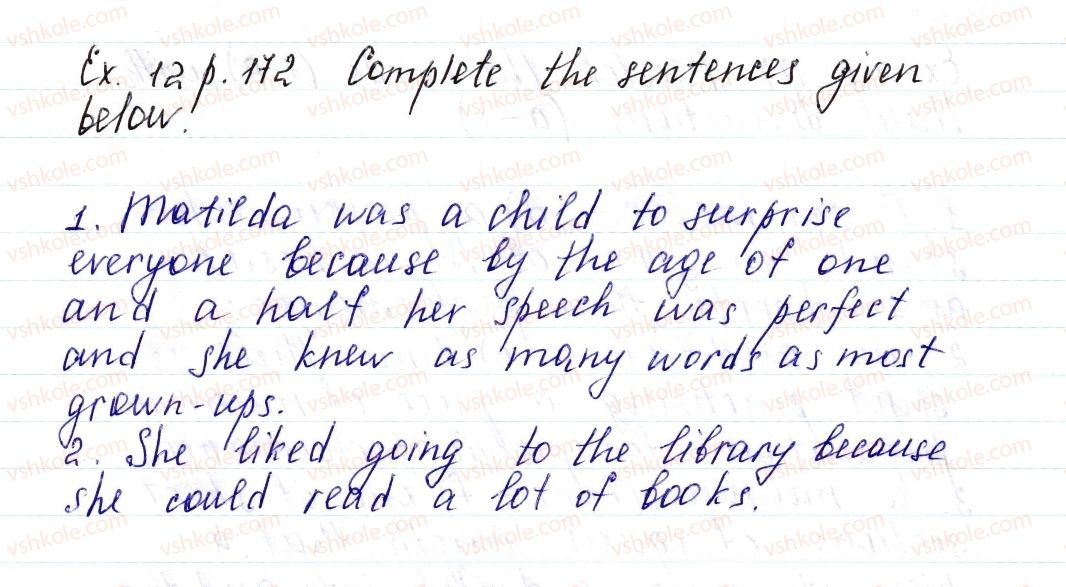 Ex. 12 p. 172 Complete the sentences given
below.
1. Matilda was a child to surprise
everyone because by the age of one
and a half her speech was perfect
and she knew as many words as most
grown-ups.
2. She liked going to the library because
she could read a lot of books.